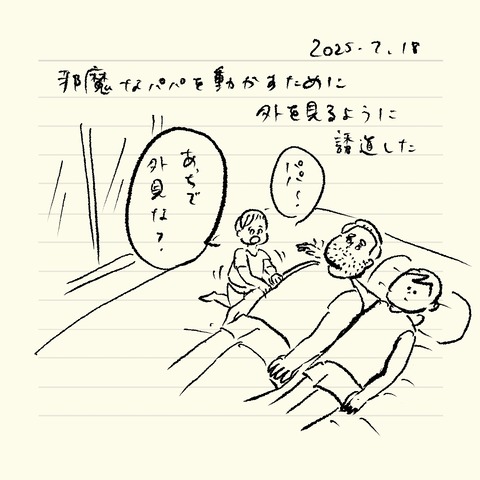 2025.7.18
邪魔なパパを動かすために
外を見るように
誘導した
パパ〜
あっちで
外見な？